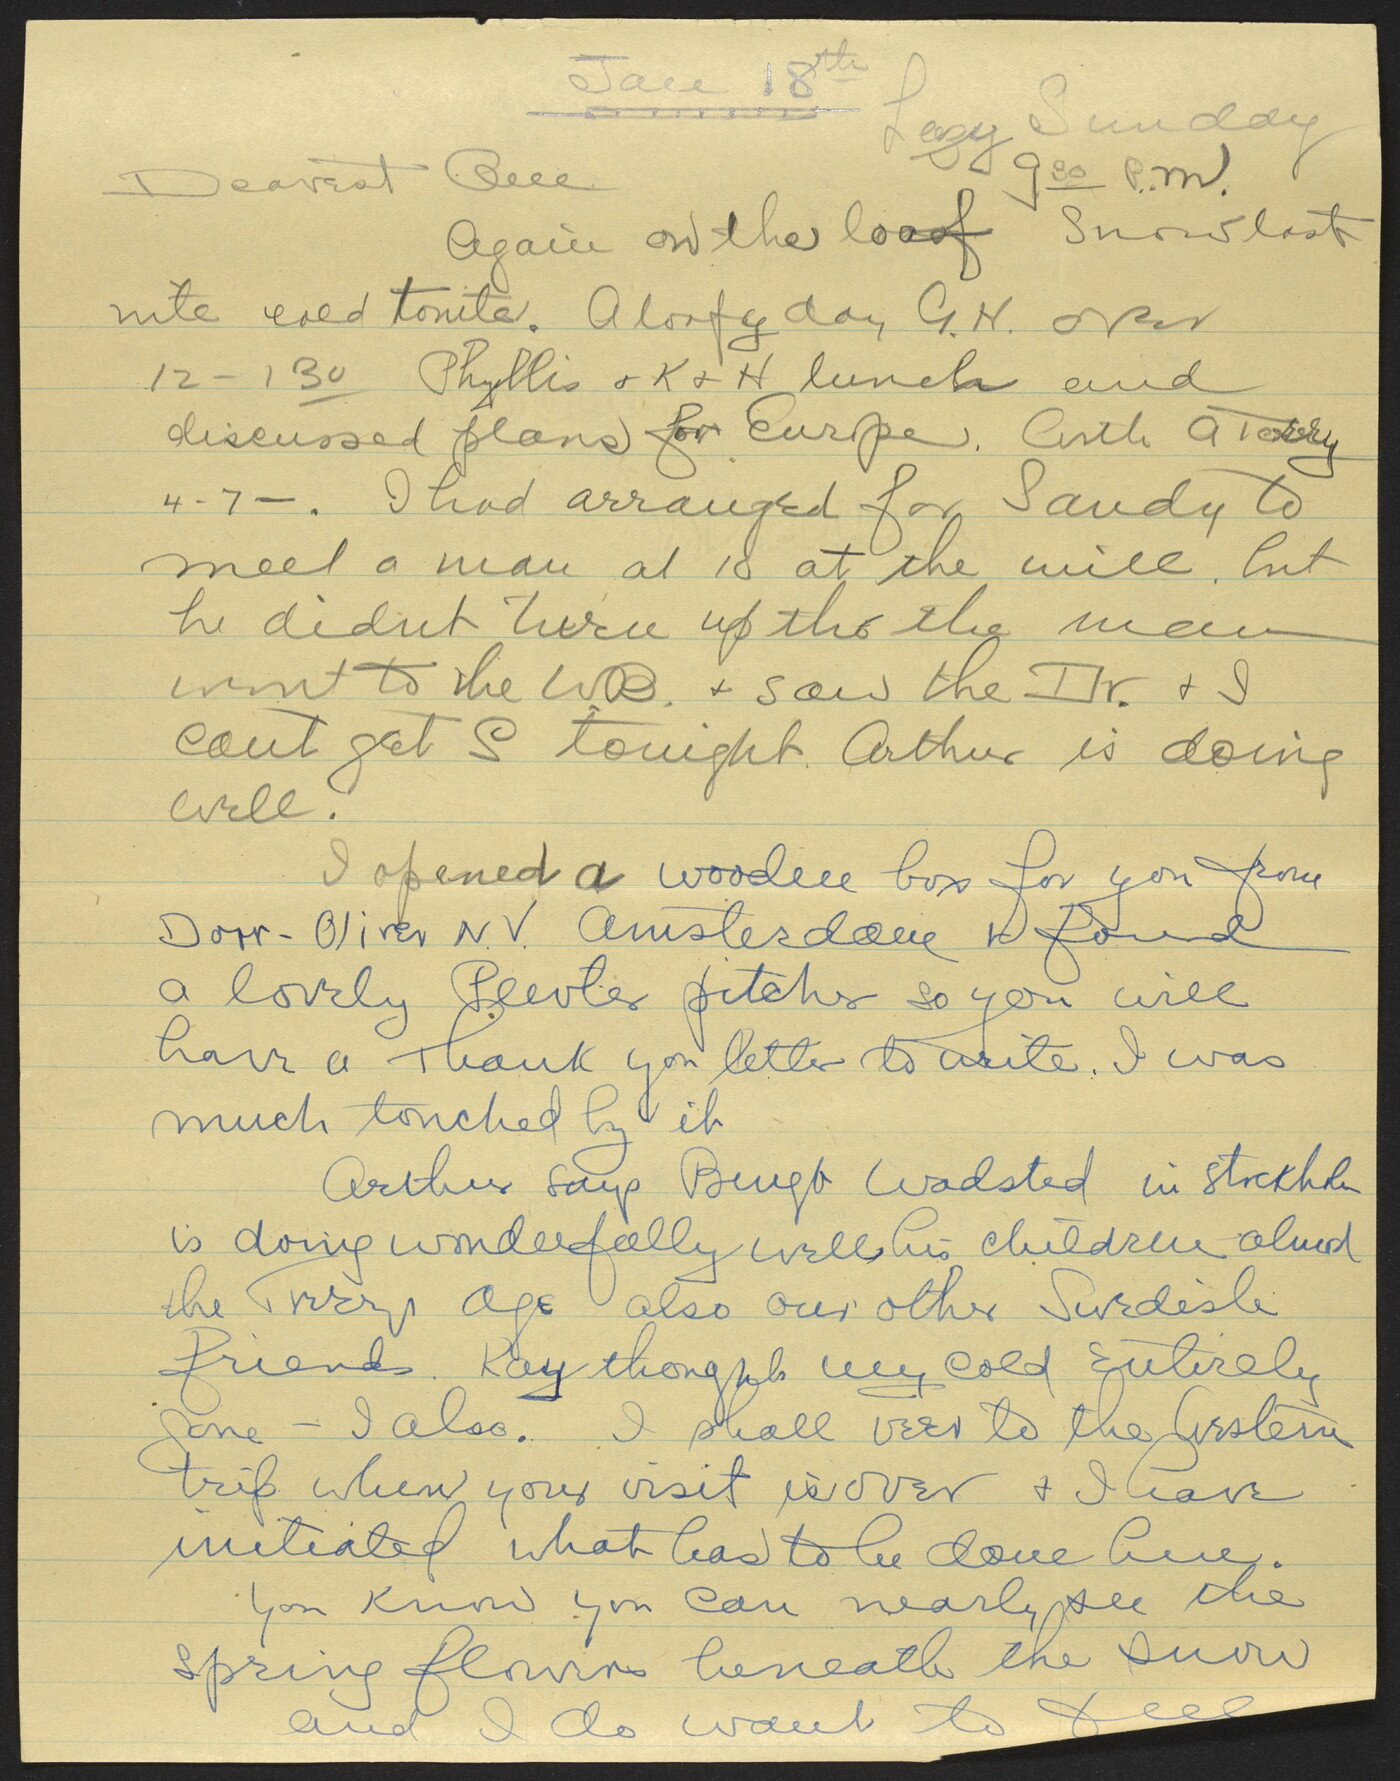 Jan 18th
Lazy Sunday
9 30 P.M.
Dearest
Again on the loaf Snow last
nite cold tonite. A loafy day G.H. over
12 - 1 30 Phyllis + K + H lunch and
discussed plans for Europe. Arth
4-7-. I had arranged for Sandy to
meet a man at 10 at the mill. but
he didnt turn up tho the man
went to the W.B. + saw the Dr. + I
cant get S tonight. Arthur is doing
well.
I opened a wooden box for you from
Dorr-Oliver N.V. Amsterdam & found
a lovely Pewter pitcher so you will
have a Thank you letter to write. I was
much touched by it
Arthur says Bengt Wadsted in Stockholm
is doing wonderfully well his children almost
the Age also our other Swedish
friends. Kay thought my cold Entirely
gone - I also. I shall veer to the Western
trip when your visit is over + I have
initiated what has to be done here.
You know you can nearly see the
spring flowers beneath the snow
and I do want to